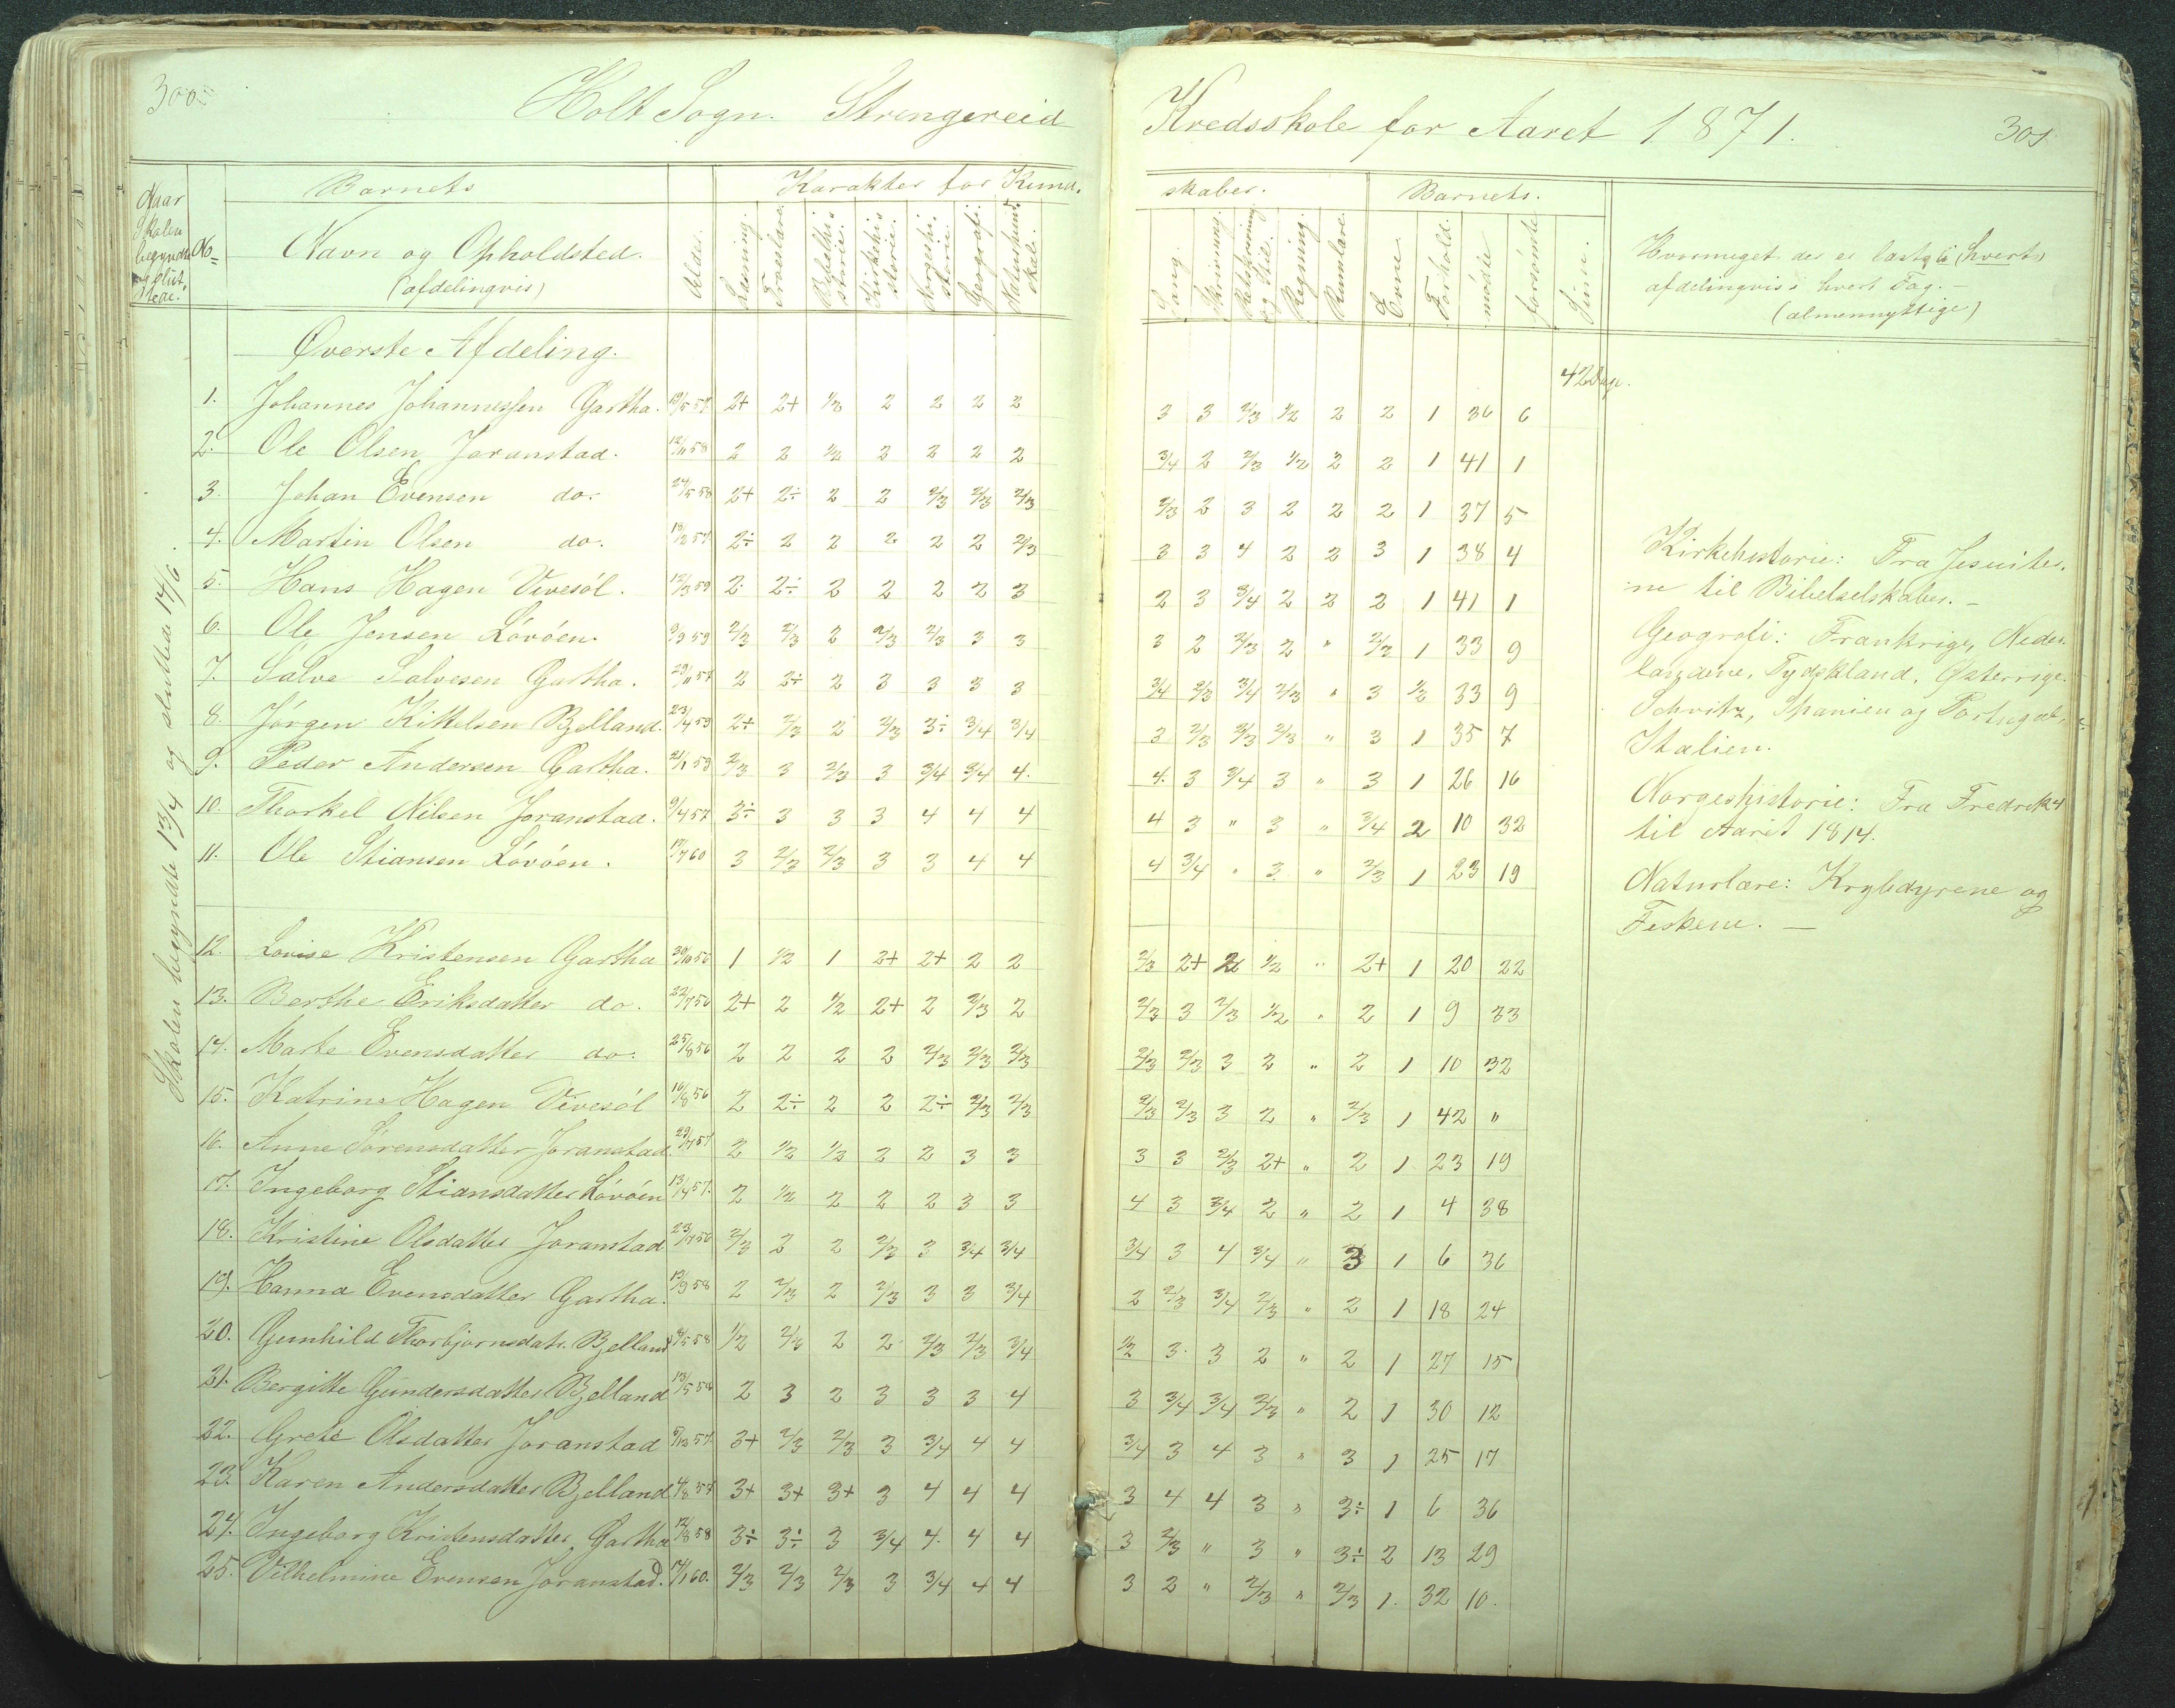 300.
Holt Sogn. Strengereid
Kredsskole for Aaret 1871.
301
Naar Skolen begyndte og sluttede.
No
Barnets
Navn og Opholdsted.
(afdelingvis)
Alder.
Karakter for Kund-
skaber.
Læsning.
Troeslære
Bibelhistorie.
Kirkehistorie.
Norgeshistorie.
Geografi.
Naturkundskab.
Sang.
Skrivning.
Retskrivning og Stil.
Regning.
Rumlære.
Barnets.
Evne
Forhold.
mødte
forsømte
Hvormeget der er læst i (hvert)
afdelingvis i hvert Fag.
(almennyttige)
Skolen begyndte 13/4 og sluttede 14/6.
Øverste Afdeling.
42 Dage.
1. Johannes Johannessen Gartha. 19/5 57 2+ 2+ 1/2 2 2 2 2 3 3 2/3 1/2 2 2 1 36 6
2. Ole Olsen Joranstad. 12/11 58 2 2 1/2 2 2 2 2 3/4 2 2/3 1/2 2 2 1 41 1
3. Johan Evensen do. 24/5 58 2+ 2÷ 2 2 2/3 2/3 2/3 2/3 2 3 2 2 2 1 37 5
4. Martin Olsen do. 2÷ 2 2 2 2 2 2/3 3 3 4 2 2 3 1 38 4
5. Hans Hagen Vivesöl. 12/3 59 2 2÷ 2 2 2 2 3 2 3 3/4 2 2 2 1 41 1
6. Ole Jensen Lövöen. 9/9 59 2/3 2/3 2 2/3 2/3 3 3 3 2 2/3 2 " 2/3 1 33 9
7. Salve Salvesen Gartha. 29/11 57 2 2÷ 2 3 3 3 3 3/4 2/3 3/4 2/3 " 3 1/2 33 9
8. Jörgen Kittelsen Bjelland. 23/4 59 2+ 2/3 2 2/3 3÷ 3/4 3/4 3 2/3 2/3 2/3 " 3 1 35 7
9. Peder Andersen Gartha. 21/1 59 2/3 3 2/3 3 3/4 3/4 4. 4. 3 3/4 3 " 3 1 26 16
10. Thorkel Nilsen Joranstad. 9/4 57 3÷ 3 3 3 4 4 4 4 3 " 3 " 3/4 2 10 32
11. Ole Stiansen Lövöen. 17/7 60 3 2/3 2/3 3 3 4 4 4 3/4 " 3 " 2/3 1 23 19
12. Lovise Kristensen Gartha 30/10 56 1 1/2 1 2+ 2+ 2 2 2/3 2+ 2 1/2 " 2+ 1 20 22
13. Berthe Eriksdatter do. 22/7 56 2+ 2 1/2 2+ 2 2/3 2 2/3 3 2/3 1/2 " 2 1 9 33
14. Marte Evensdatter do. 25/8 56 2 2 2 2 2/3 2/3 2/3 2/3 2/3 3 2 " 2 1 10 32
15. Katrine Hagen Vivesöl 16/8 56 2 2÷ 2 2 2÷ 2/3 2/3 2/3 2/3 3 2 " 2/3 1 42 "
16. Anne Sörensdatter Joranstad. 29/7 57 2 1/2 1/2 2 2 3 3 3 3 2/3 2+ " 2 1 23 19
17. Ingeborg Stiansdatter Lövöen 13/4 57. 2 1/2 2 2 2 3 3 4 3 3/4 2 " 2 1 4 38
18. Kristine Olsdatter Joranstad 23/7 56 2/3 2 2 2/3 3 3/4 3/4 3/4 3 4 3/4 " 3 1 6 36
19. Hanna Evensdatter Gartha. 13/9 58 2 2/3 2 2/3 3 3 3/4 2 2/3 3/4 2/3 " 2 1 18 24
20. Gunhild Thorbjørnsdatr. Bjelland 1/2 2/3 2 2 2/3 2/3 3/4 1/2 3 3 2 " 2 1 27 15
21. Bergitte Gundersdatter Bjelland 2 3 2 3 3 3 4 3 3/4 3/4 2/3 " 2 1 30 12
22. Grete Olsdatter Joranstad 3+ 2/3 2/3 3 3/4 4 4 3/4 3 4 3 " 3 1 25 17
23. Karen Andersdatter Bjelland 4/8 57 3+ 3+ 3+ 3 4 4 4 3 4 4 3 " 3÷ 1 6 36
24. Ingeborg Kristensdatter Gartha 12/8 58 3÷ 3÷ 3 3/4 4 4 4 3 2/3 " 3 " 3÷ 2 13 29
25. Vilhelmine Evensen Joranstad. 2/3 2/3 2/3 3 3/4 4 4 3 2 " 2/3 " 2/3 1. 32 10.
Kirkehistorie: Fra Jesuiter-
ne til Bibelselskaber.
Geografi: Frankrige, Neder-
landene, Tydskland, Østerrige.
Schvitz, Spanien og Portugal,
Italien.
Norgeshistorie: Fra Fredrik 4
til Aaret 1814.
Naturlære: Krybdyrene og
Feskene. —